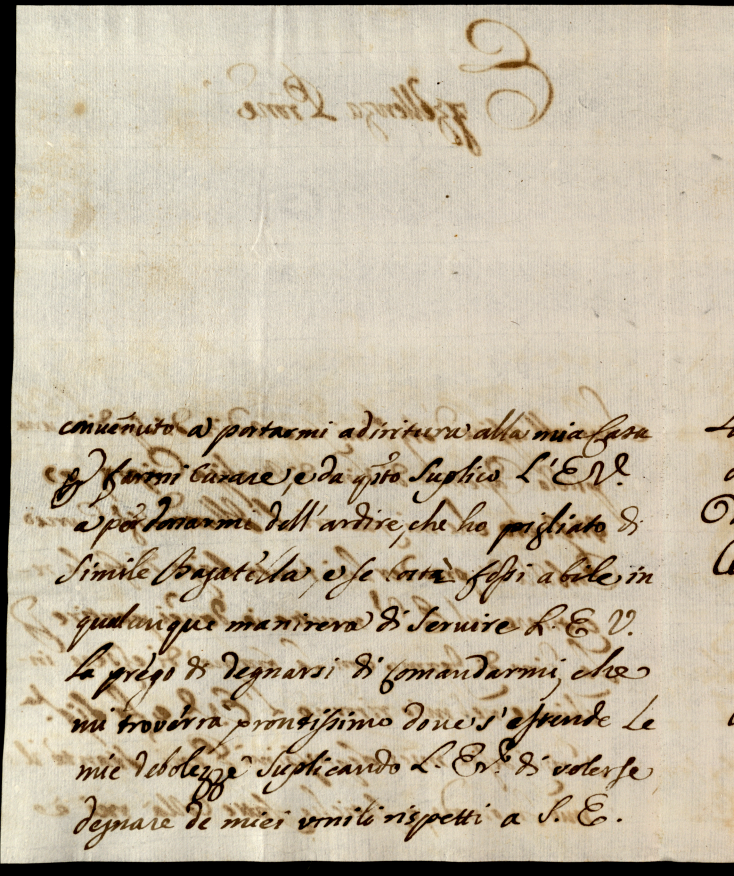 convenuto a portarmi adiritura alla mia Casa
p farmi Curare, e da qsto Suplico L'E.V.
a perdonarmi dell'ardire, che ho pigliato di
Simile Bagatella, e se fossi abile in
qualunque manirera di Servire L. E V.
la prego di degnarsi di Comandarmi, che
mi troverrà prontissimo dove s'estende Le
mie debolezze Suplicando L. E.V. di volerse
degnare de miei vmili rispetti a S. E.